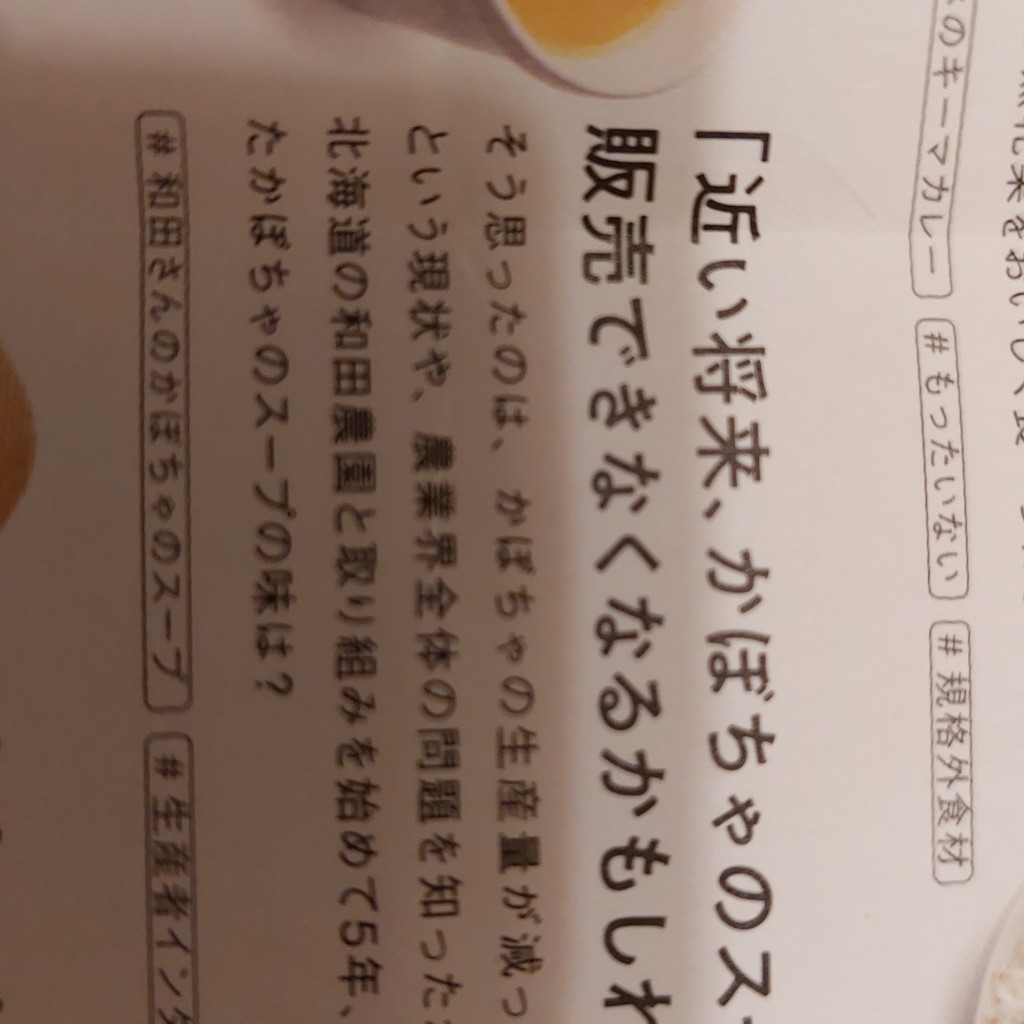 のキーマカレー #もったいない #規格外食材
「近い将来、かぼちゃのス
販売できなくなるかもしれ
そう思ったのは、かぼちゃの生産量が減っ
という現状や、農業界全体の問題を知った
北海道の和田農園と取り組みを始めて5年、
たかぼちゃのスープの味は?
#和田さんのかぼちゃのスープ #生産者イン